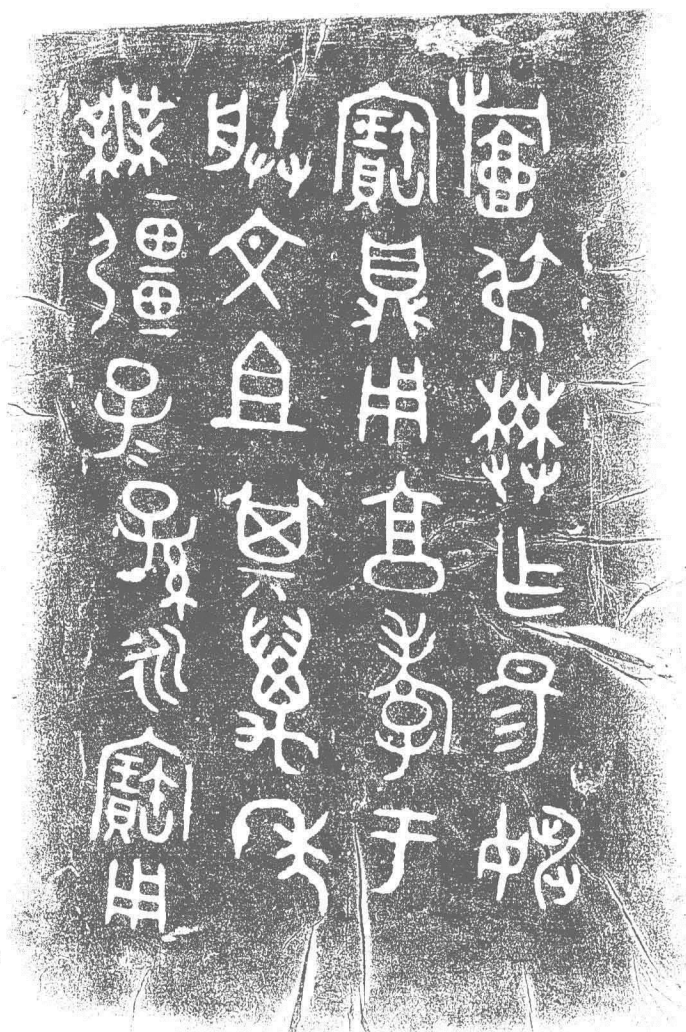 弔樊乍易姚
寶鼎用享孝于
朕文且其萬年
無彊子＝孫永寶用